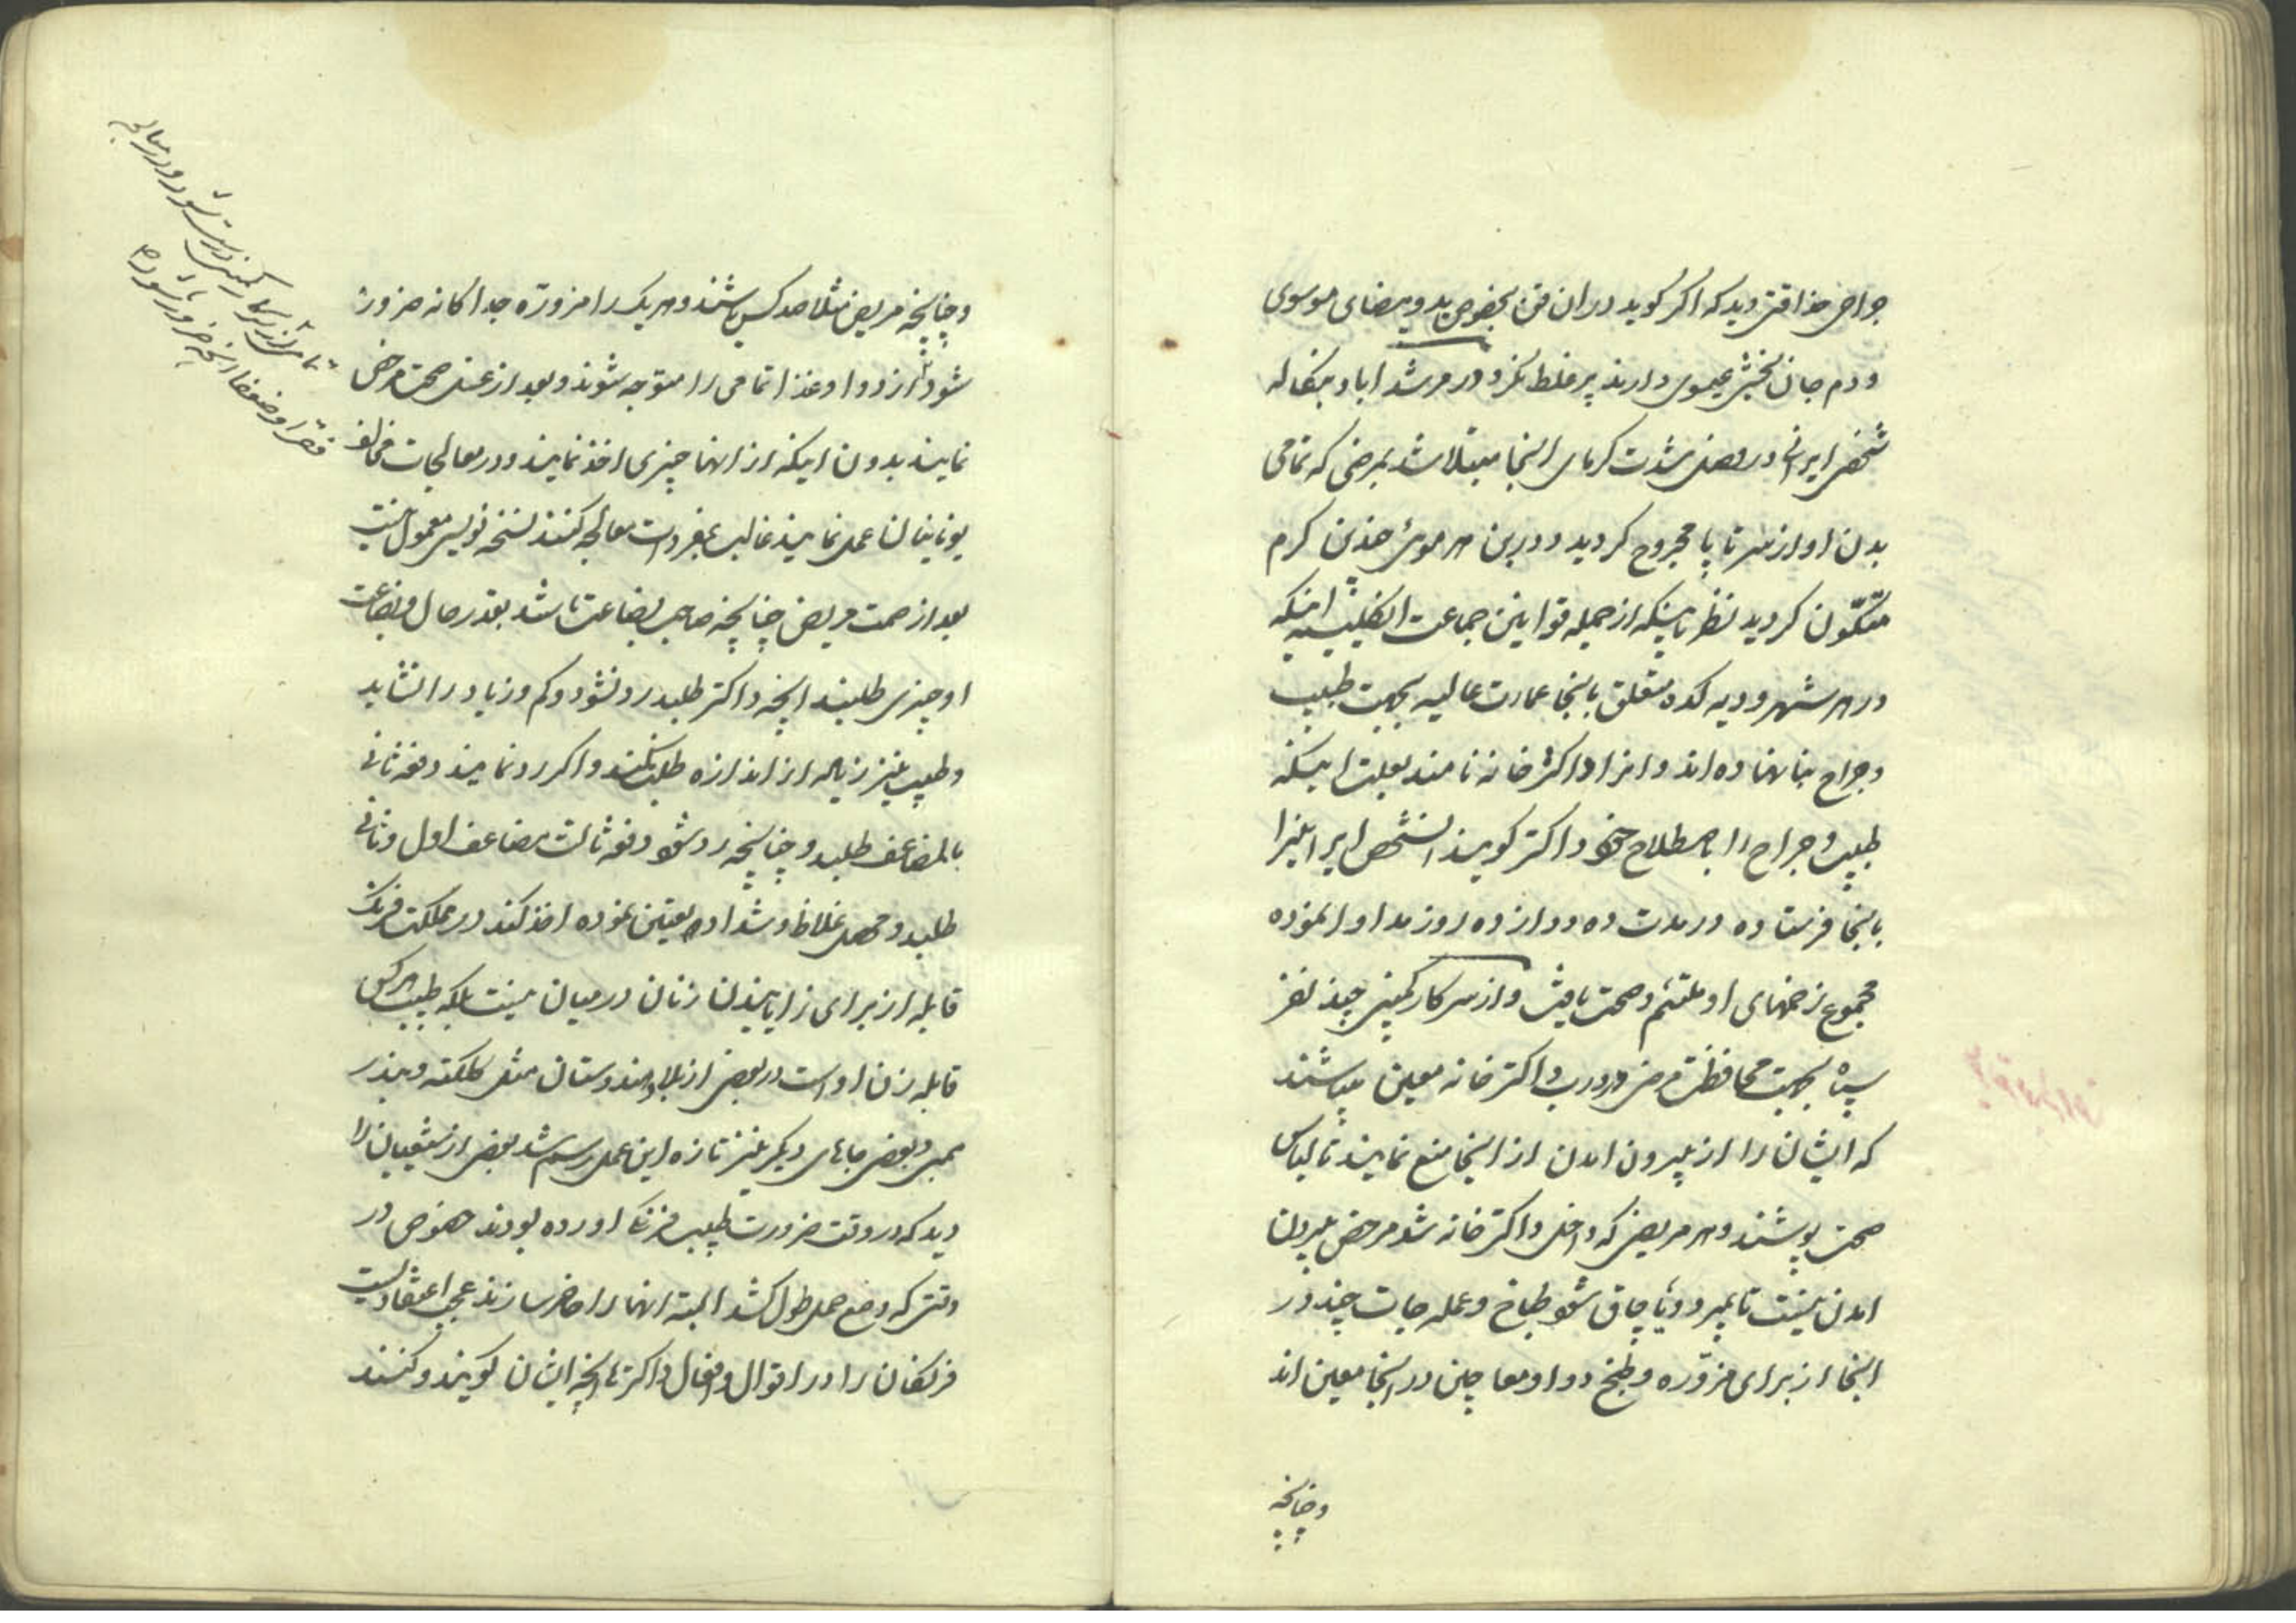 جراحی حذاقتی دید که اگر گوید در ان فن بخصوص ید و بیضای موسوی
و دم جان بخشی عیسوی دارند پر غلط نکرد و در مرشد اباد بنگاله
شخص ایرانی در فصل شدت گرمای اینجا مبتلا شد بمرضی که تمامی
بدن او از سر تا پا مجروح گردید و در بن هر موئی چندین کرم
متکوّن گردید نظر باینکه از جمله قوانین جماعت انگلیسیه اینکه
در هر شهر و دیهکده متعلق باینجا عمارت عالیه بجهت طبیب
و جراح بنا نهاده اند و انرا داکتر خانه نامند بعلت اینکه
طبیب و جراح را باصطلاح خود داکتر گویند انشخص ایرانیرا
باینجا فرستاده در مدت ده دوازده روز مداوا نموده
مجموع زخمهای او ملتئم و صحت یافت و از سرکار کمپنی چند نفر
سپاه بجهت محافظت مرضی در درب داکتر خانه معین میباشند
که ایشان را از بیرون امدن از اینجا منع نمایند تا لباس
صحت پوشند و هر مریضی که داخل داکتر خانه شد مرخص بیرون
امدن نیست تا بمیرد و یا چاق شود طباخ و عمله جات چند در
اینجا از برای مزوّره و طبخ دوا و معاجین در اینجا معین اند
وچنانچه
وچنانچه مریض مثلا صد کس باشند و هر یک را مزورّه جداگانه ضرور
شود از دوا و غذا تمامی را متوجه شوند و بعد از غسل صحت مرخص
نمایند بدون اینکه از انها چیزی اخذ نمایند و در معالجات مخالف
یونانیان عمل نمایند غالب بمفردات معالجه کنند نسخه نویسی معمول نیست
بعد از صحت مریض چنانچه صاحب بضاعت باشد بقدر حال و بضاعت
او چیزی طلبند انچه داکتر طلبد رد نشود و کم و زیاد را نشاید
و طبیب نیز زیاده از اندازه طلب نکند و اگر رد نمایند دفعه ثانی
بالمضاعف طلبد و چنانچه رد شود دفعه ثالث مضاعف اول و ثانی
طلبد و محصل غلاظ و شداد تعیین نموده اخذ کند در مملکت فرنگ
قابله از برای زایانیدن زنان در میان نیست بلکه طبیب هر کس
قابله زن او است در بعضی از بلاد هندوستان مثل کلکته و بندر
بمبی و بعضی جاهای دیگر نیز تازه این عمل رسم شد بعضی از شیعیان را
دید که در وقت ضرورت طبیب فرنگی اورده بودند خصوص در
وقتی که وضع حمل طول کشد البته انها را حاضر سازند عجب اعتقادیست
فرنگان را در اقوال و افعال داکترها انچه ایشان گویند و کنند
تمامی از سرکار کمپنی داده میشود و در معالجه
فقرا و ضعفا انچه ضرور باشد